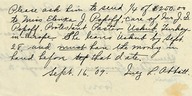 Please ask him to send 1/4 of $200.00
to Miss Elenka J. Popoff, care of Mrs. J. D.
Popoff, Protestant Pastor Uskub, Turkey
in Europe. She leaves Uskub by Sept.
28 and must have the money in
hand before that date.
Sept. 16, 09. Lucy L. Abbott.